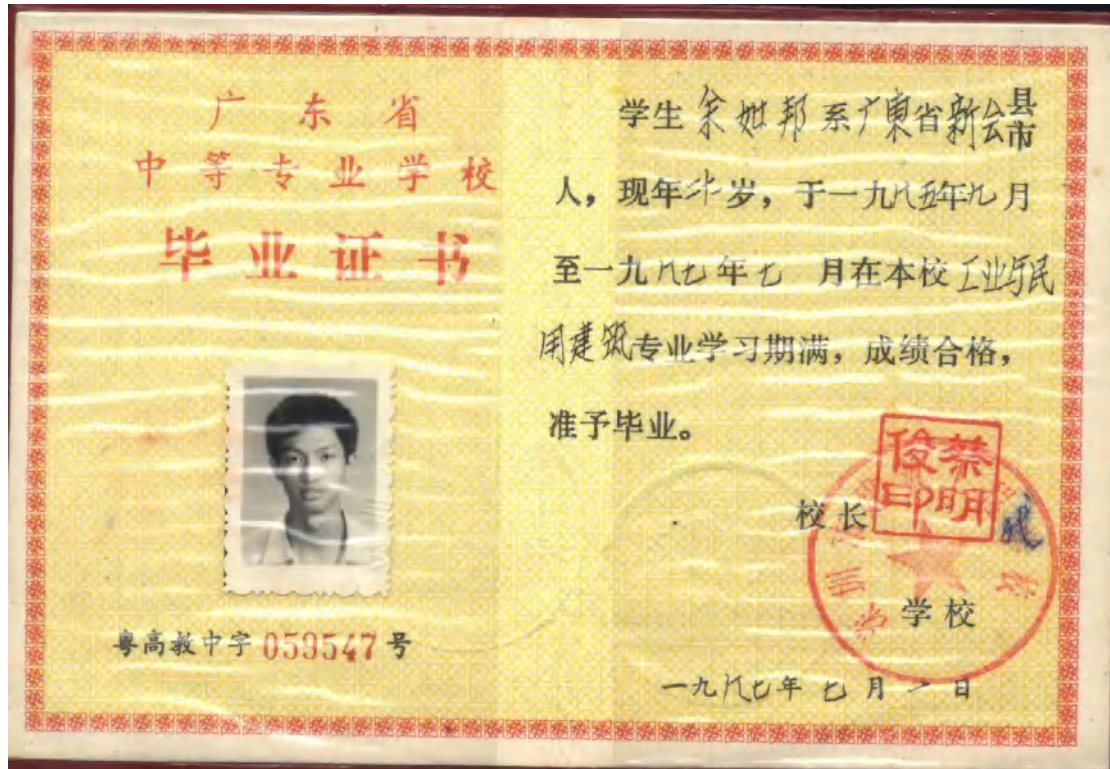 广东省
中等专业学校
毕业证书
粤高教中字 059547 号
学生 余 邦 系广東省新会县市
人，现年 岁，于一九八五年九月
至一九八七年七 月在本校工业与民
用建筑专业学习期满，成绩合格，
准予毕业。
校长
蔡明
俊印
学校
一九八七年 七 月 一 日